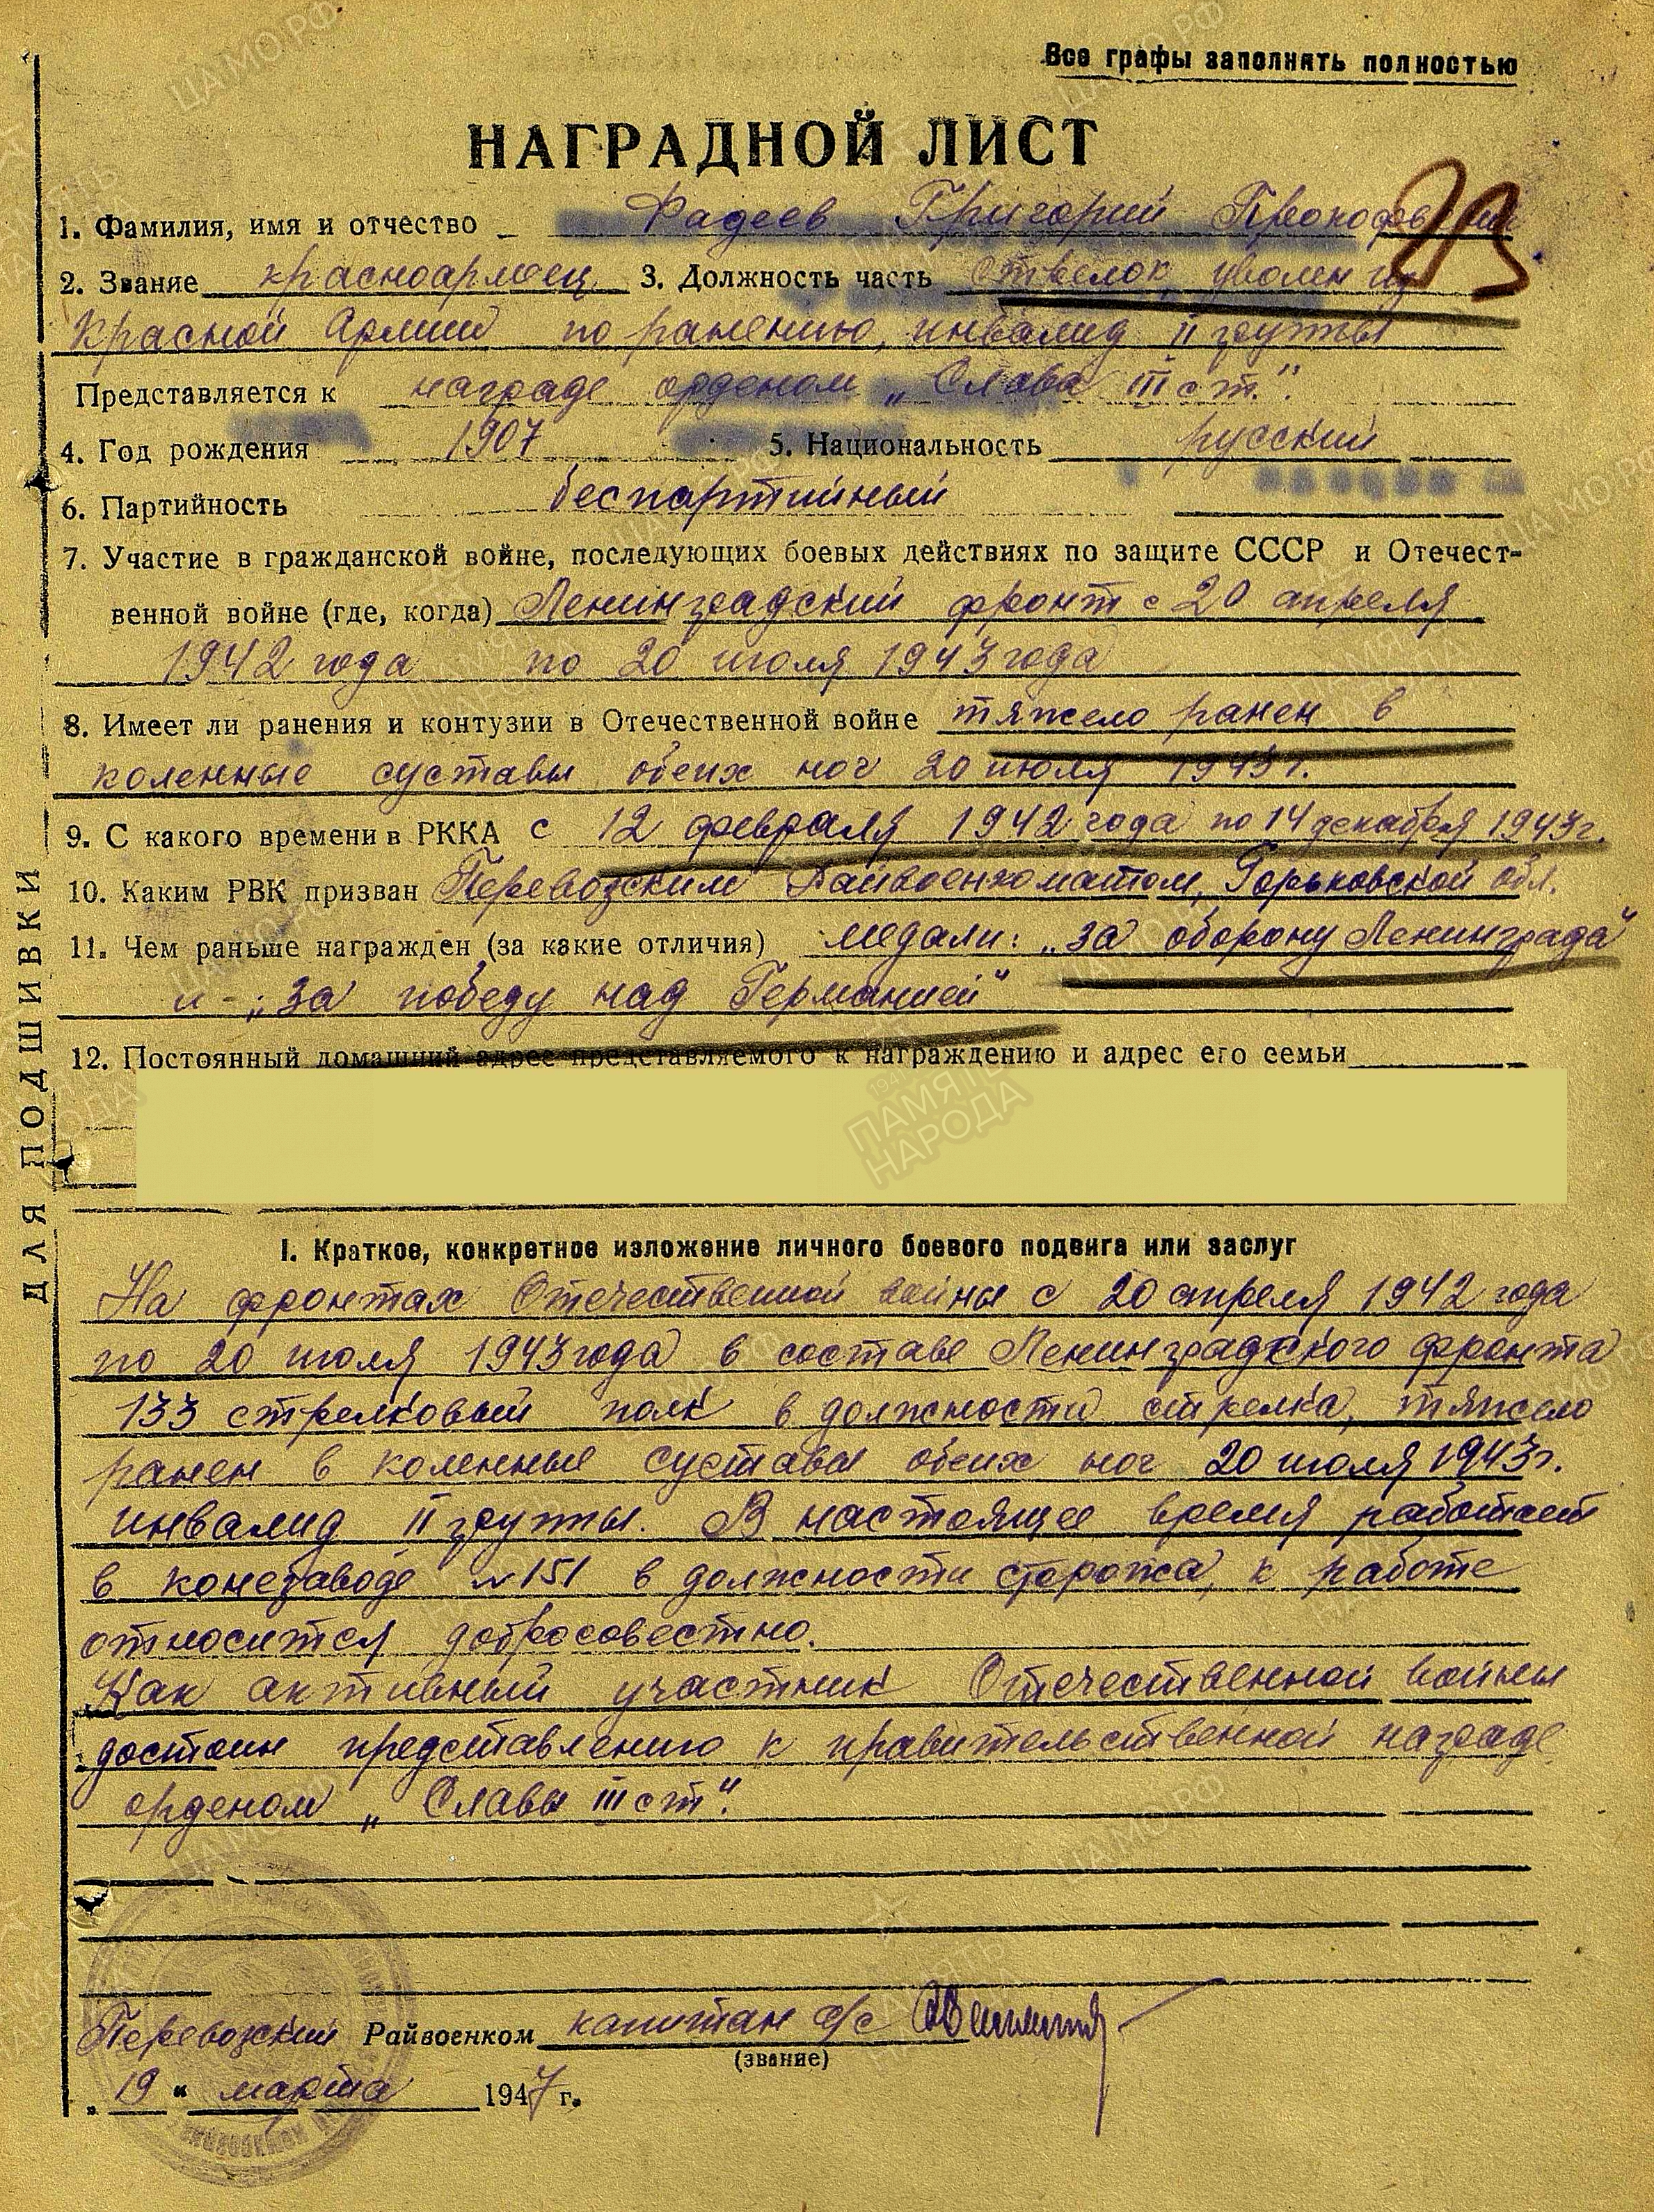 Все графы заполнять полностью
НАГРАДНОЙ ЛИСТ
1. Фамилия, имя и отчество Фадеев Григорий Прокофьевич
2. Звание красноармеец 3. Должность часть стрелок, уволен из
Красной Армии по ранению, инвалид II группы
Представляется к награде орденом „Слава III ст."
4. Год рождения 1907 5. Национальность русский
6. Партийность беспартийный
7. Участие в гражданской войне, последующих боевых действиях по защите СССР и Отечест-
венной войне (где, когда) Ленинградский фронт с 20 апреля
1942 года по 20 июля 1943 года
8. Имеет ли ранения и контузии в Отечественной войне тяжело ранен в
коленные суставы обеих ног 20 июля 1943 г.
9. С какого времени в РККА с 12 февраля 1942 года по 14 декабря 1943 г.
10. Каким РВК призван Перевозским Райвоенкоматом, Горьковской обл.
11. Чем раньше награжден (за какие отличия) медали: „за оборону Ленинграда"
и „за победу над Германией"
12. Постоянный домашний адрес представляемого к награждению и адрес его семьи
ДЛЯ ПОДШИВКИ
I. Краткое, конкретное изложение личного боевого подвига или заслуг
На фронтах Отечественной войны с 20 апреля 1942 года
по 20 июля 1943 года в составе Ленинградского фронта
133 стрелковый полк в должности стрелка, тяжело
ранен в коленные суставы обеих ног 20 июля 1943 г.
инвалид II группы. В настоящее время работает
в конезаводе №151 в должности сторожа, к работе
относится добросовестно.
Как активный участник Отечественной войны
достоин представлению к правительственной награде
орденом „Славы III ст".
Перевозский Райвоенком капитан а/с
(звание)
„19" марта 1947 г.
ПАМЯТЬ
НАРОДА
ЦАМО.РФ